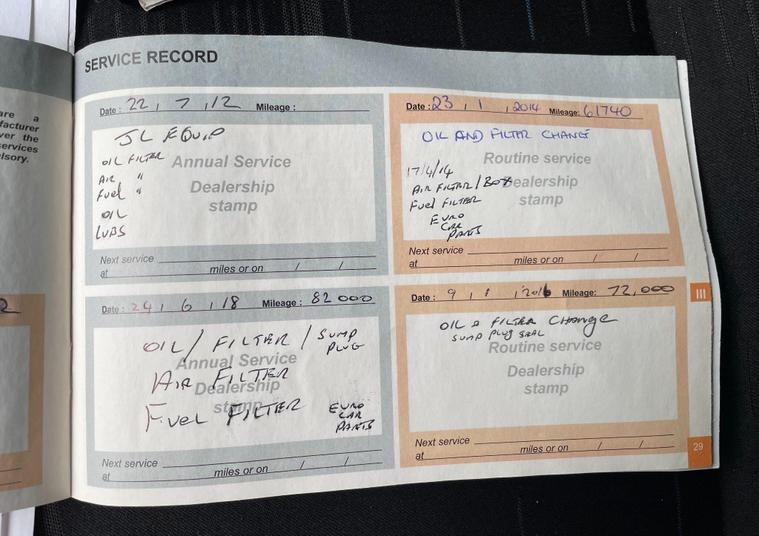 are a
facturer
ver the
services
lsory.
SERVICE RECORD
Date : 22 / 7 / 12 Mileage :
JL EQUIP
OIL FILTER
AIR "
FUEL "
OIL
LUBS
Annual Service
Dealership
stamp
Next service
at miles or on / /
Date : 23 / 1 / 2014 Mileage: 61740
OIL AND FILTER CHANGE
Routine service
17/4/14
AIR FILTER / BOX
Dealership
FUEL FILTER
stamp
EURO
CAR
PARTS
Next service
at miles or on / /
Date : 24 / 6 / 18 Mileage : 82000
OIL / FILTER / SUMP
PLUG
Annual Service
AIR FILTER
Dealership
stamp
FUEL FILTER
EURO
CAR
PARTS
Next service
at miles or on / /
Date : 9 / 1 / 2016 Mileage: 72,000
OIL & FILTER CHANGE
SUMP PLUG SEAL
Routine service
Dealership
stamp
Next service
at miles or on / /
III
29